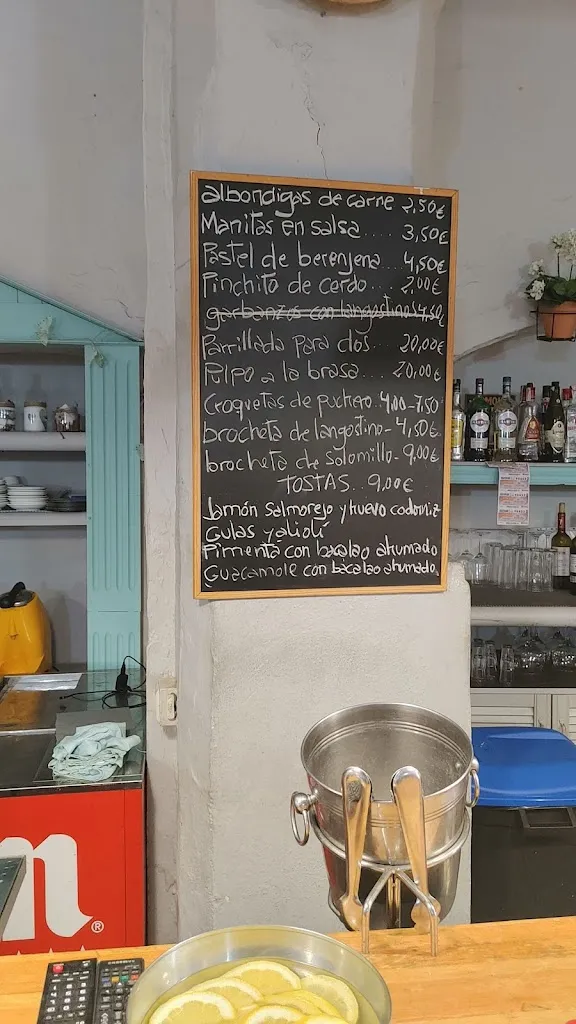 albondigas de carne 2,50€
Manitas en salsa..... 3,50€
Pastel de berenjena... 4,50€
Pinchito de cerdo... 2,00€
garbanzos con langostinos 4,50
Parrillada para dos... 20,00€
Pulpo a la brasa.... 20,00€
Croquetas de puchero..4,00-7,50
brocheta de langostino-4,50€
brocheta de solomillo-9,00€
TOSTAS..9,00€
Jamón salmorejo y huevo codorniz
Gulas y alioli
Pimenta con bacalao ahumado
Guacamole con bacalao ahumado
m®